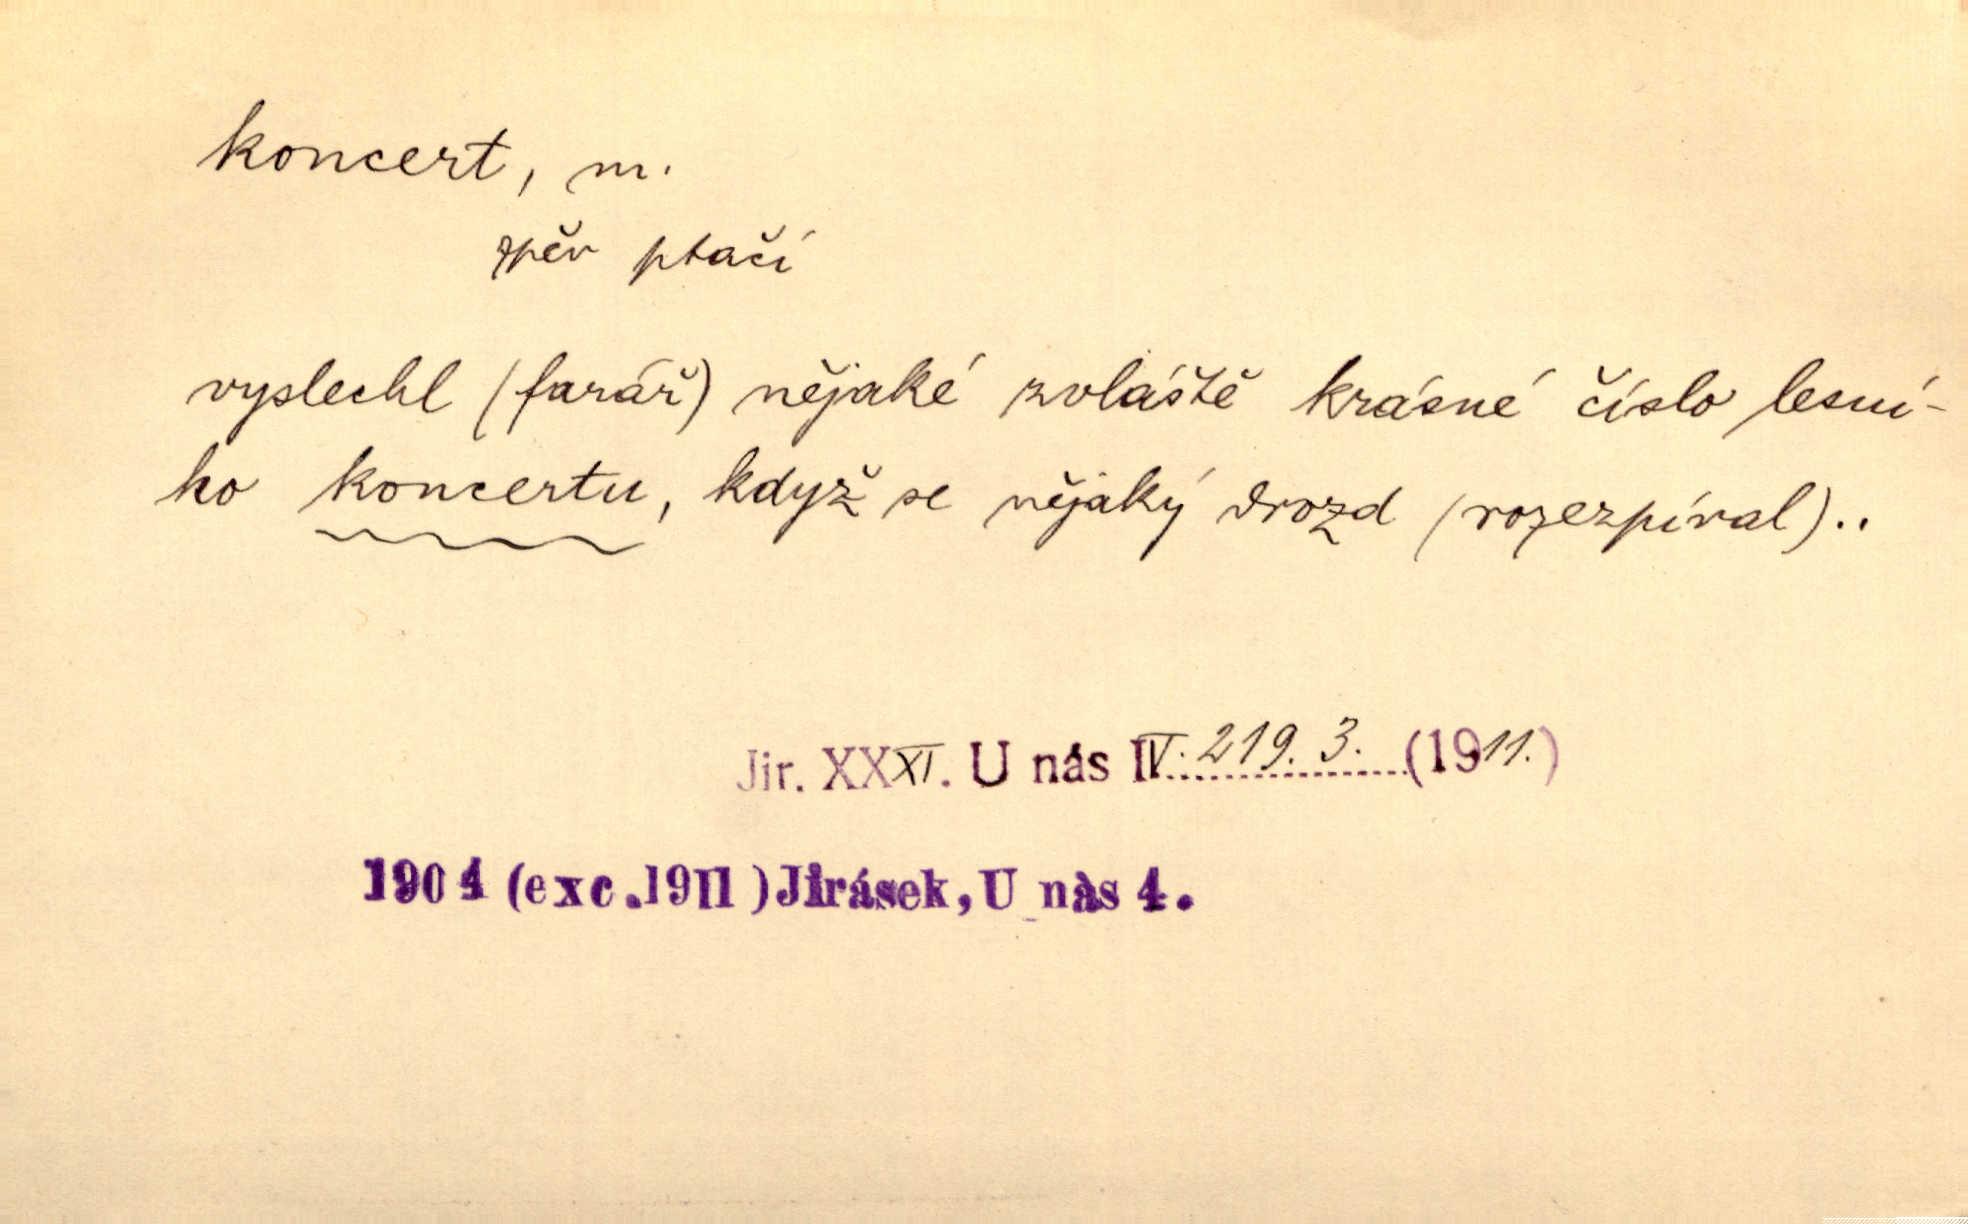 koncert, m.
zpěv ptačí
vyslechl (farář) nějaké zvláště krásné číslo lesní-
ho koncertu, když se nějaký drozd (rozezpíval)..
Jir. XXXI. U nás IV. 219. 3. (1911.)
1904 (exc.1911) Jirásek, U nàs 4.